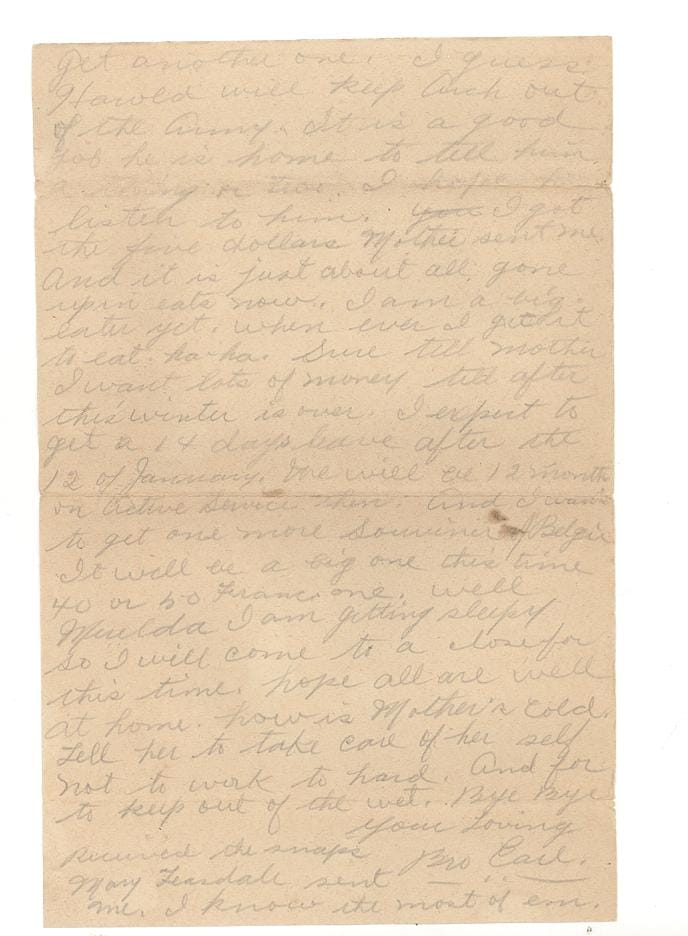 get another one. I guess
Harold will keep Arch out
of the Army. It is a good
job he is home to tell him
a thing or two. I hope he
listen to him. you I got
the five dollars Mother sent me.
And it is just about all gone
upin eats now. I am a big
eater yet. when ever I get it
to eat. ha-ha. Sure till mother
I want lots of money till after
this winter is over. I expect to
get a 14 days leave after the
12 of January. We will be 12 month
on Active Service then. And I want
to get one more Souviner of Belgie
It will be a big one this time
40 or 50 Franc one. well
I am getting sleepy
so I will come to a close for
this time. hope all are well
at home. how is Mother's Cold.
Tell her to take care of her self
not to work to hard. And for
to keep out of the wet. Bye Bye
your Loving
Bro Earl.
Received the snaps
Mary Teasdale sent
me. I know the most of em.